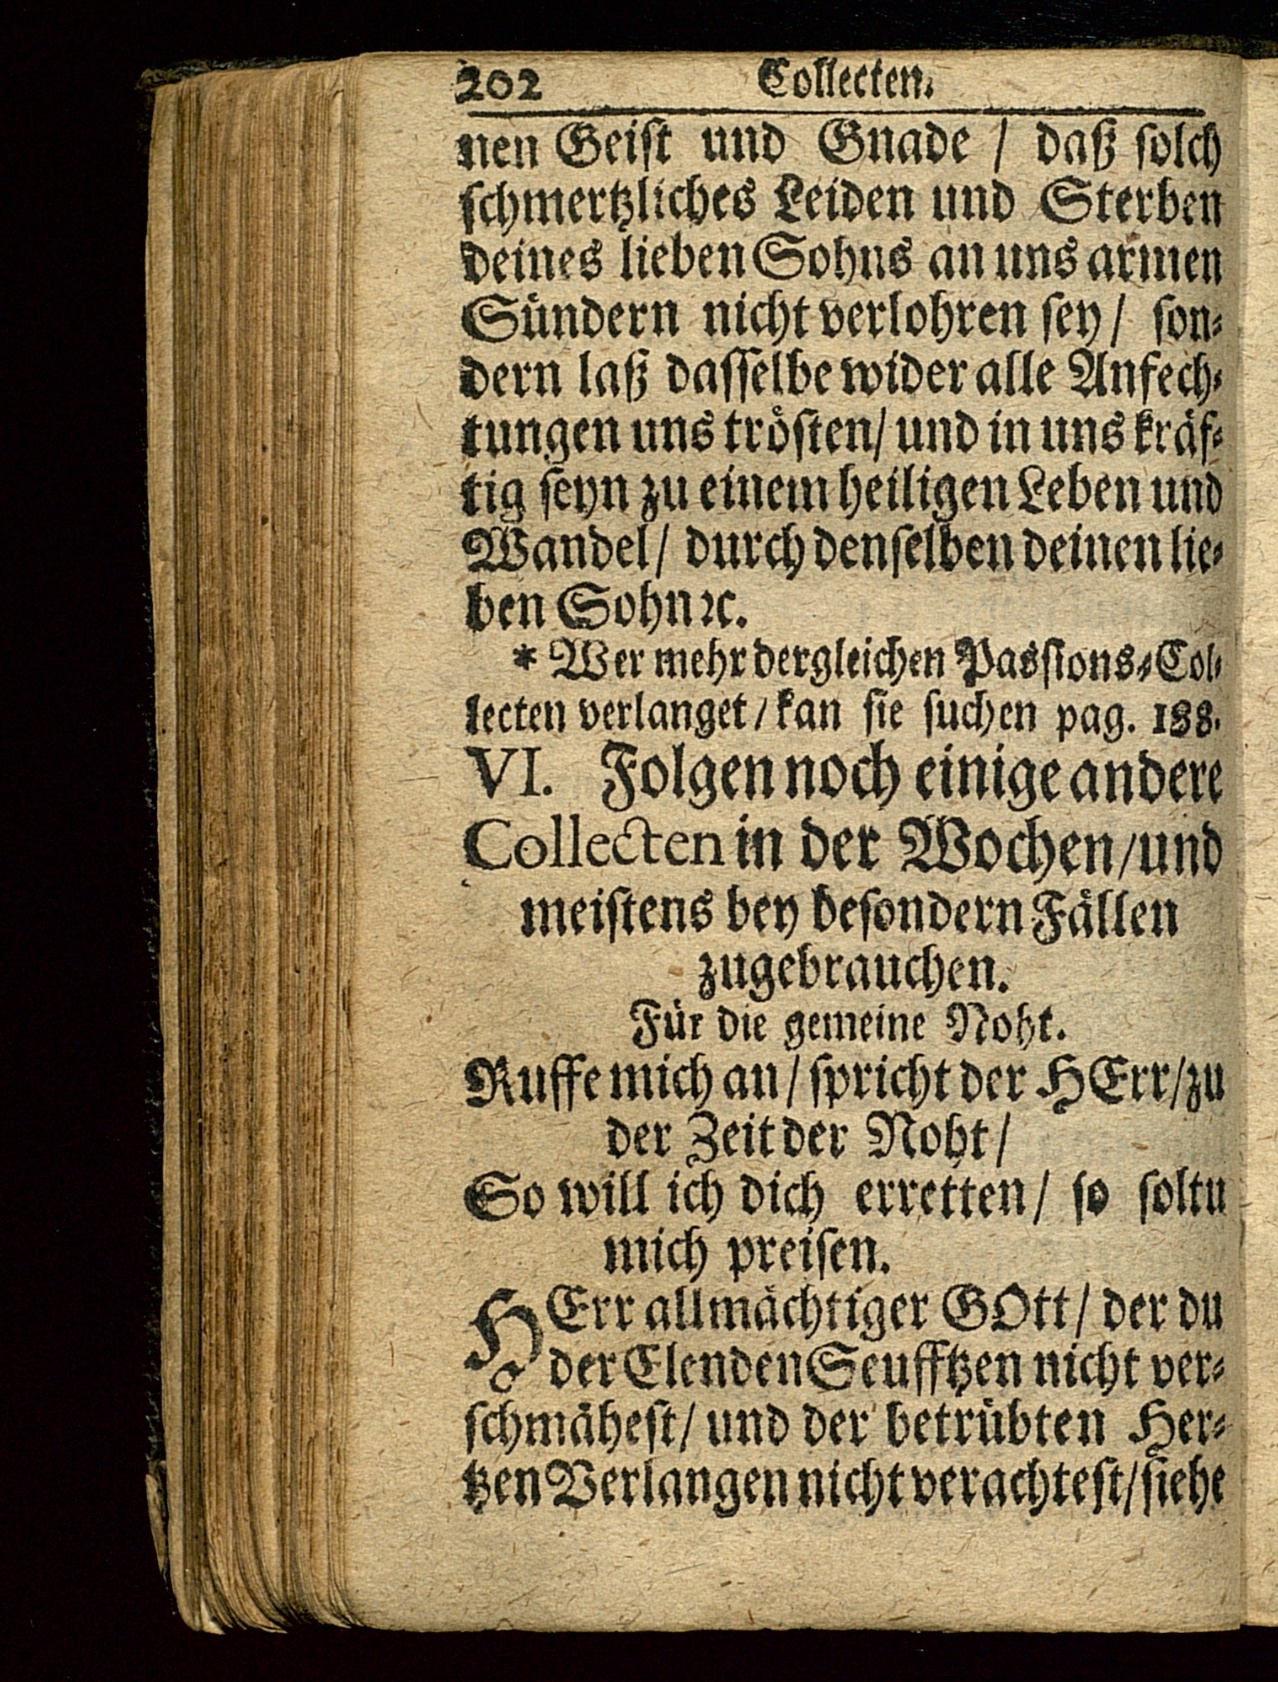 202 Collecten.
nen Geist und Gnade / daß solch
schmertzliches Leiden und Sterben
deines lieben Sohns an uns armen
Sündern nicht verlohren sey / son-
dern laß dasselbe wider alle Anfech-
tungen uns trösten / und in uns kräf-
tig seyn zu einem heiligen Leben und
Wandel / durch denselben deinen lie-
ben Sohn ꝛc.
* Wer mehr dergleichen Passions-Col-
lecten verlanget / kan sie suchen pag. 188.
VI. Folgen noch einige andere
Collecten in der Wochen / und
meistens bey besondern Fällen
zugebrauchen.
Für die gemeine Noht.
Ruffe mich an / spricht der HErr / zu
der Zeit der Noht /
So will ich dich erretten / so soltu
mich preisen.
HErr allmächtiger GOtt / der du
der Elenden Seufftzen nicht ver-
schmähest / und der betrübten Her-
tzen Verlangen nicht verachtest / siehe